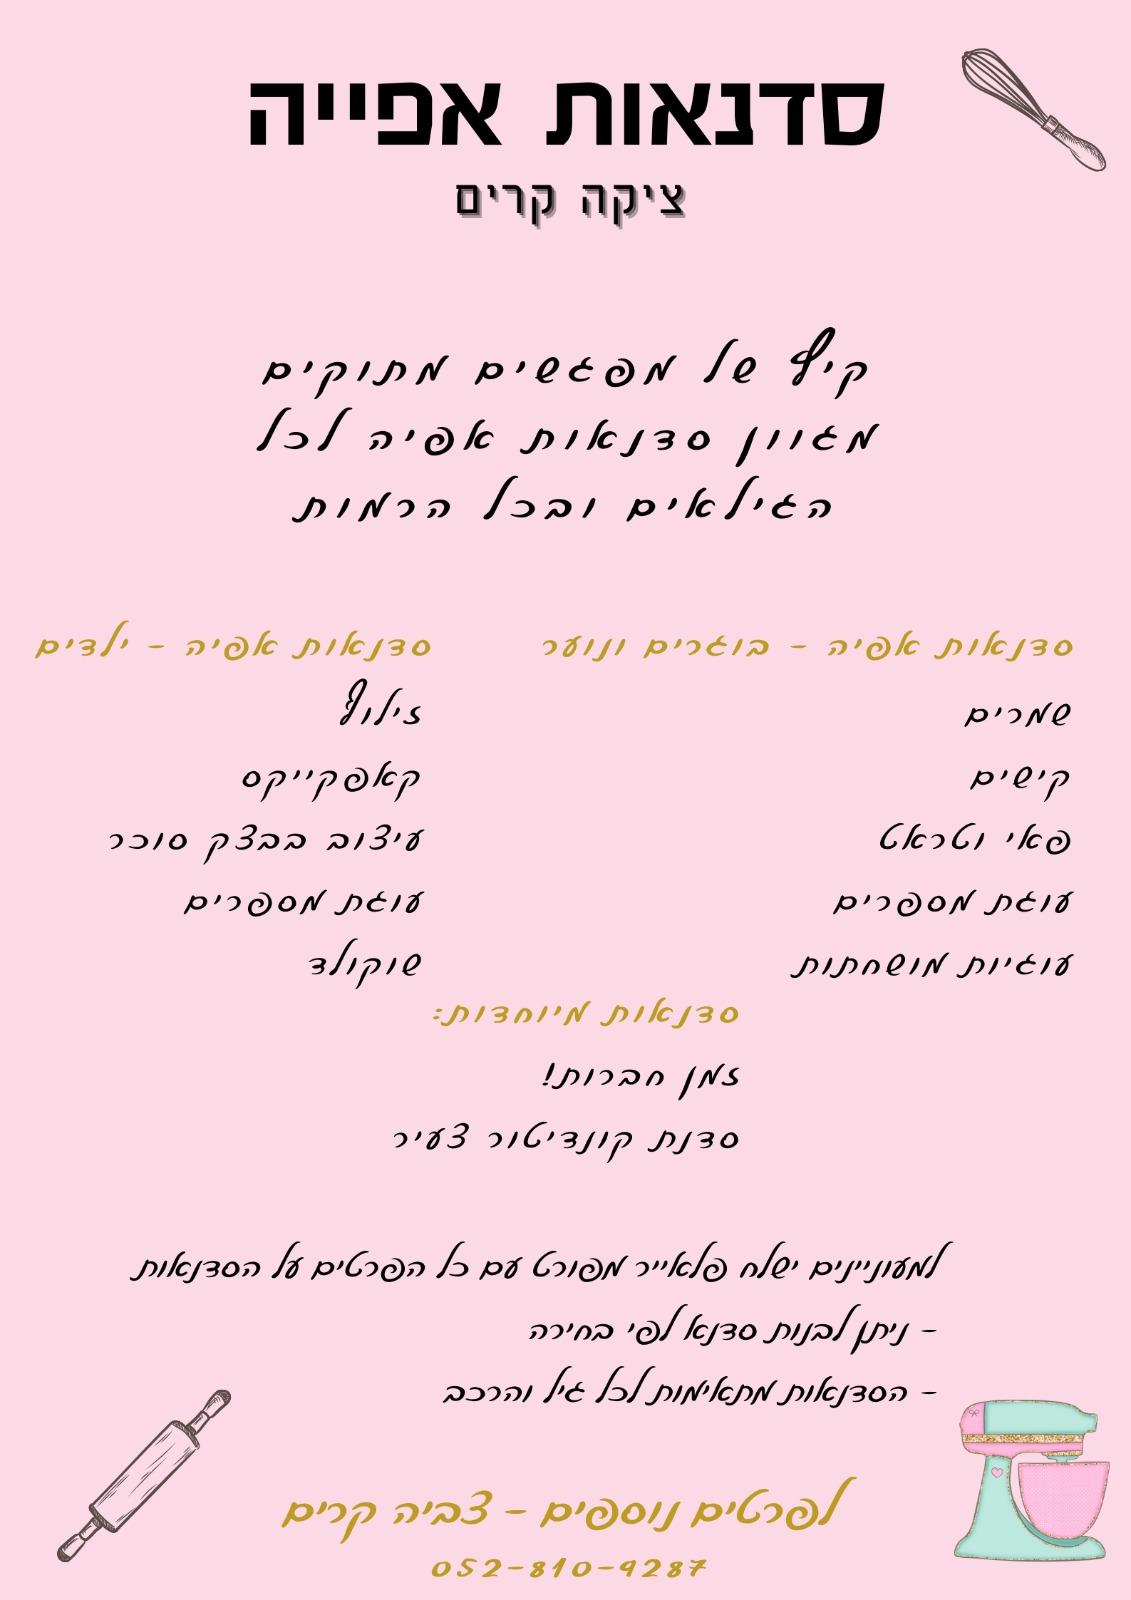 סדנאות אפייה
ציקה קרים
קיץ של מפגשים מתוקים
מגוון סדנאות אפיה לכל
הגילאים ובכל הרמות
סדנאות אפיה - בוגרים ונוער
שמרים
קישים
פאי וטראט
עוגת מספרים
עוגיות מושחתות
סדנאות אפיה - ילדים
זילוף
קאפקייקס
עיצוב בבצק סוכר
עוגת מספרים
שוקולד
סדנאות מיוחדות:
זמן חברות!
סדנת קונדיטור צעיר
למעוניינים ישלח פלאייר מפורט עם כל הפרטים על הסדנאות
- ניתן לבנות סדנא לפי בחירה
- הסדנאות מתאימות לכל גיל והרכב
לפרטים נוספים - צביה קרים
052-810-9287